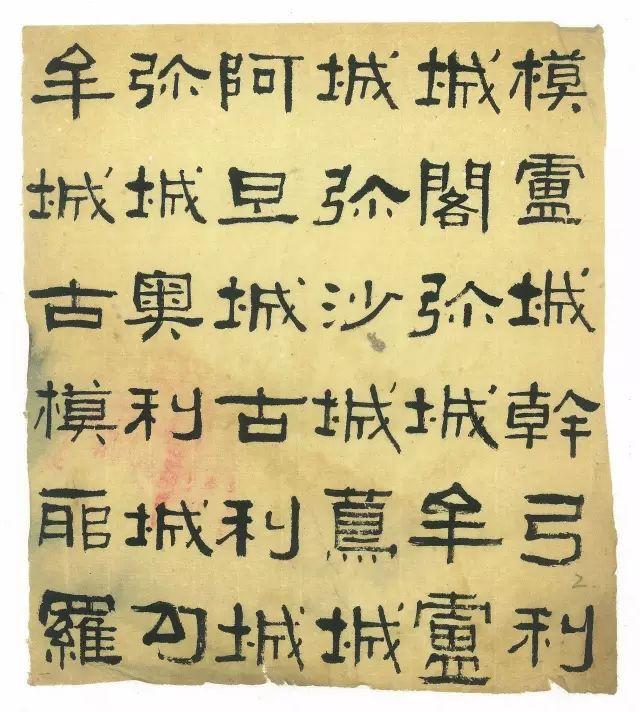 模盧城幹弓利
城閣弥城牟盧
城弥沙城蔦城
阿旦城古利城
弥城奧利城勾
牟城古模耶羅
2